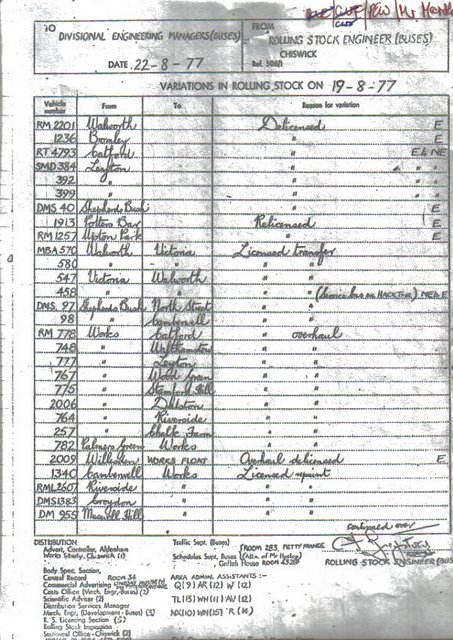 TO DIVISIONAL ENGINEERING MANAGERS (BUSES)
DATE 22-8-77
FROM ROLLING STOCK ENGINEER (BUSES)
CHISWICK
Ref. 508/1
VARIATIONS IN ROLLING STOCK ON 19-8-77
Vehicle number From To Reason for variation
RM 2201 Walworth Delicensed E
1236 Bromley " E
RT 4793 Catford " E & NE
SMD 384 Leyton " " "
392 " " " "
399 " " " "
DMS 40 Shepherds Bush " E
1913 Potters Bar Relicensed E
RM 1257 Upton Park " E
MBA 570 Walworth Victoria Licensed transfer
580 " " " "
547 Victoria Walworth " "
458 " " " " NE & E
DMS 97 Shepherds Bush North Street " "
98 " Camberwell " "
RM 778 Works Catford " overhaul
748 " Walthamstow " "
777 " Leyton " "
767 " Wood Green " "
775 " Stamford Hill " "
2006 " Dalston " "
764 " Riverside " "
257 " Chalk Farm " "
782 Palmers Green Works " "
2009 Willesden WORKS FLOAT Overhaul delicensed E
1340 Camberwell Works Licensed repaint
RML2607 Riverside " " "
DMS1383 Croydon " " "
DM 955 Muswell Hill " " "
continued over
ROLLING STOCK ENGINEER (BUSES)
DISTRIBUTION
Advert. Controller, Aldenham
Works Study, Chiswick (1)
Body Spec. Section,
Central Record ROOM 34
Commercial Advertising
Costs Office (Mech. Engr. Buses) (2)
Scientific Adviser (2)
Distribution Services Manager
Mech. Engr. (Development - Buses) (3)
R. S. Licensing Section (5)
Rolling Stock Inspection
Sectional Office - Chiswick (2)
Traffic Supt. (Buses) ROOM 283, PETTY FRANCE
Schedules Supt. (Buses) (Attn. of Mr Huxley)
Griffith House ROOM 43209
AREA ADMIN. ASSISTANTS :-
Q(9) AR(12) W(12)
TL(13) WH(11) AV(12)
NX(10) WN(15) R(14)